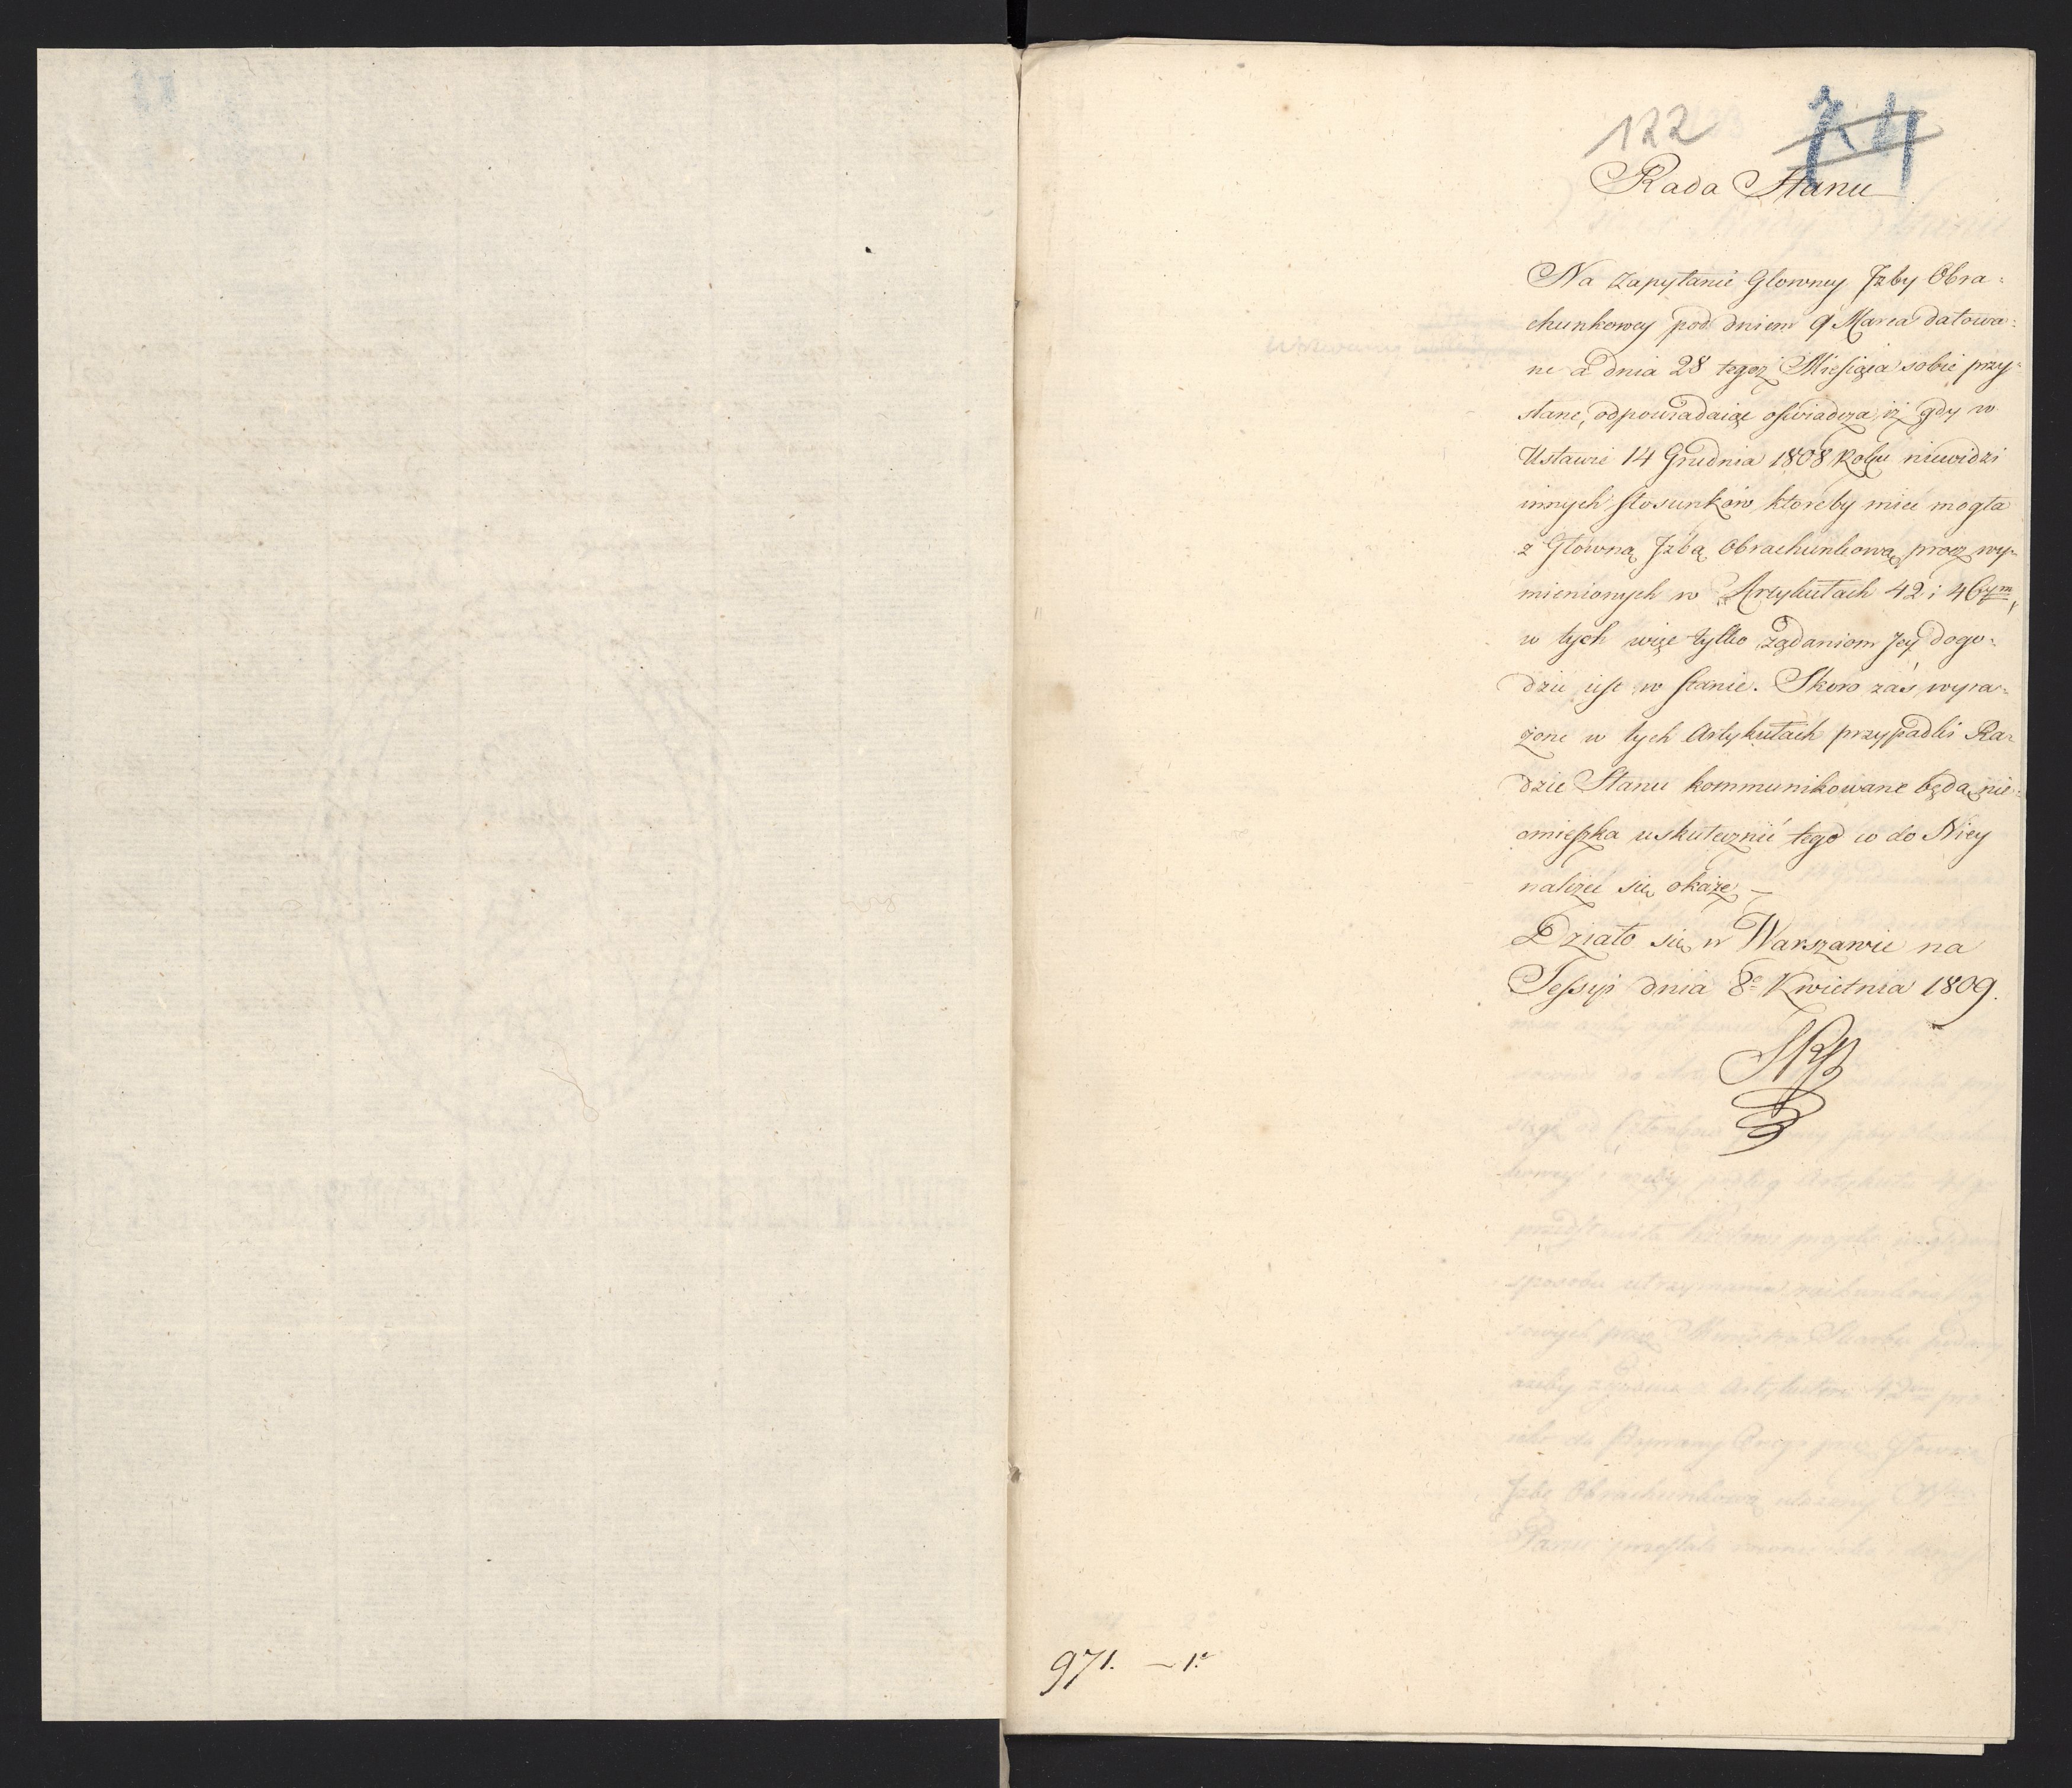 122 74
Rada Stanu
Na Zapytanie Głowney Jzby Obra-
chunkowey pod dniem 9 Marca datowa-
ne a dnia 28 tegoż Miesiąca sobie przy-
słane, odpowiadaiąc oświadcza, iż gdy w
Ustawie 14 Grudnia 1808 Roku niewidzi
innych stosunków, ktoreby mieć mogła
z Główną Jzbą Obrachunkową, procz wy-
mienionych w Artykułach 42 i 46ym,
w tych więc tylko żądaniom Jey dogo-
dzić iest w stanie. Skoro zaś wyra-
żone w tych Artykułach przypadki Ra-
dzie Stanu kommunikowane będą, nie-
omieszka uskutecznić tego co do Niey
należeć się okaże. —
Działo się w Warszawie na
Sessyi dnia 8o Kwietnia 1809.
971. — 1o